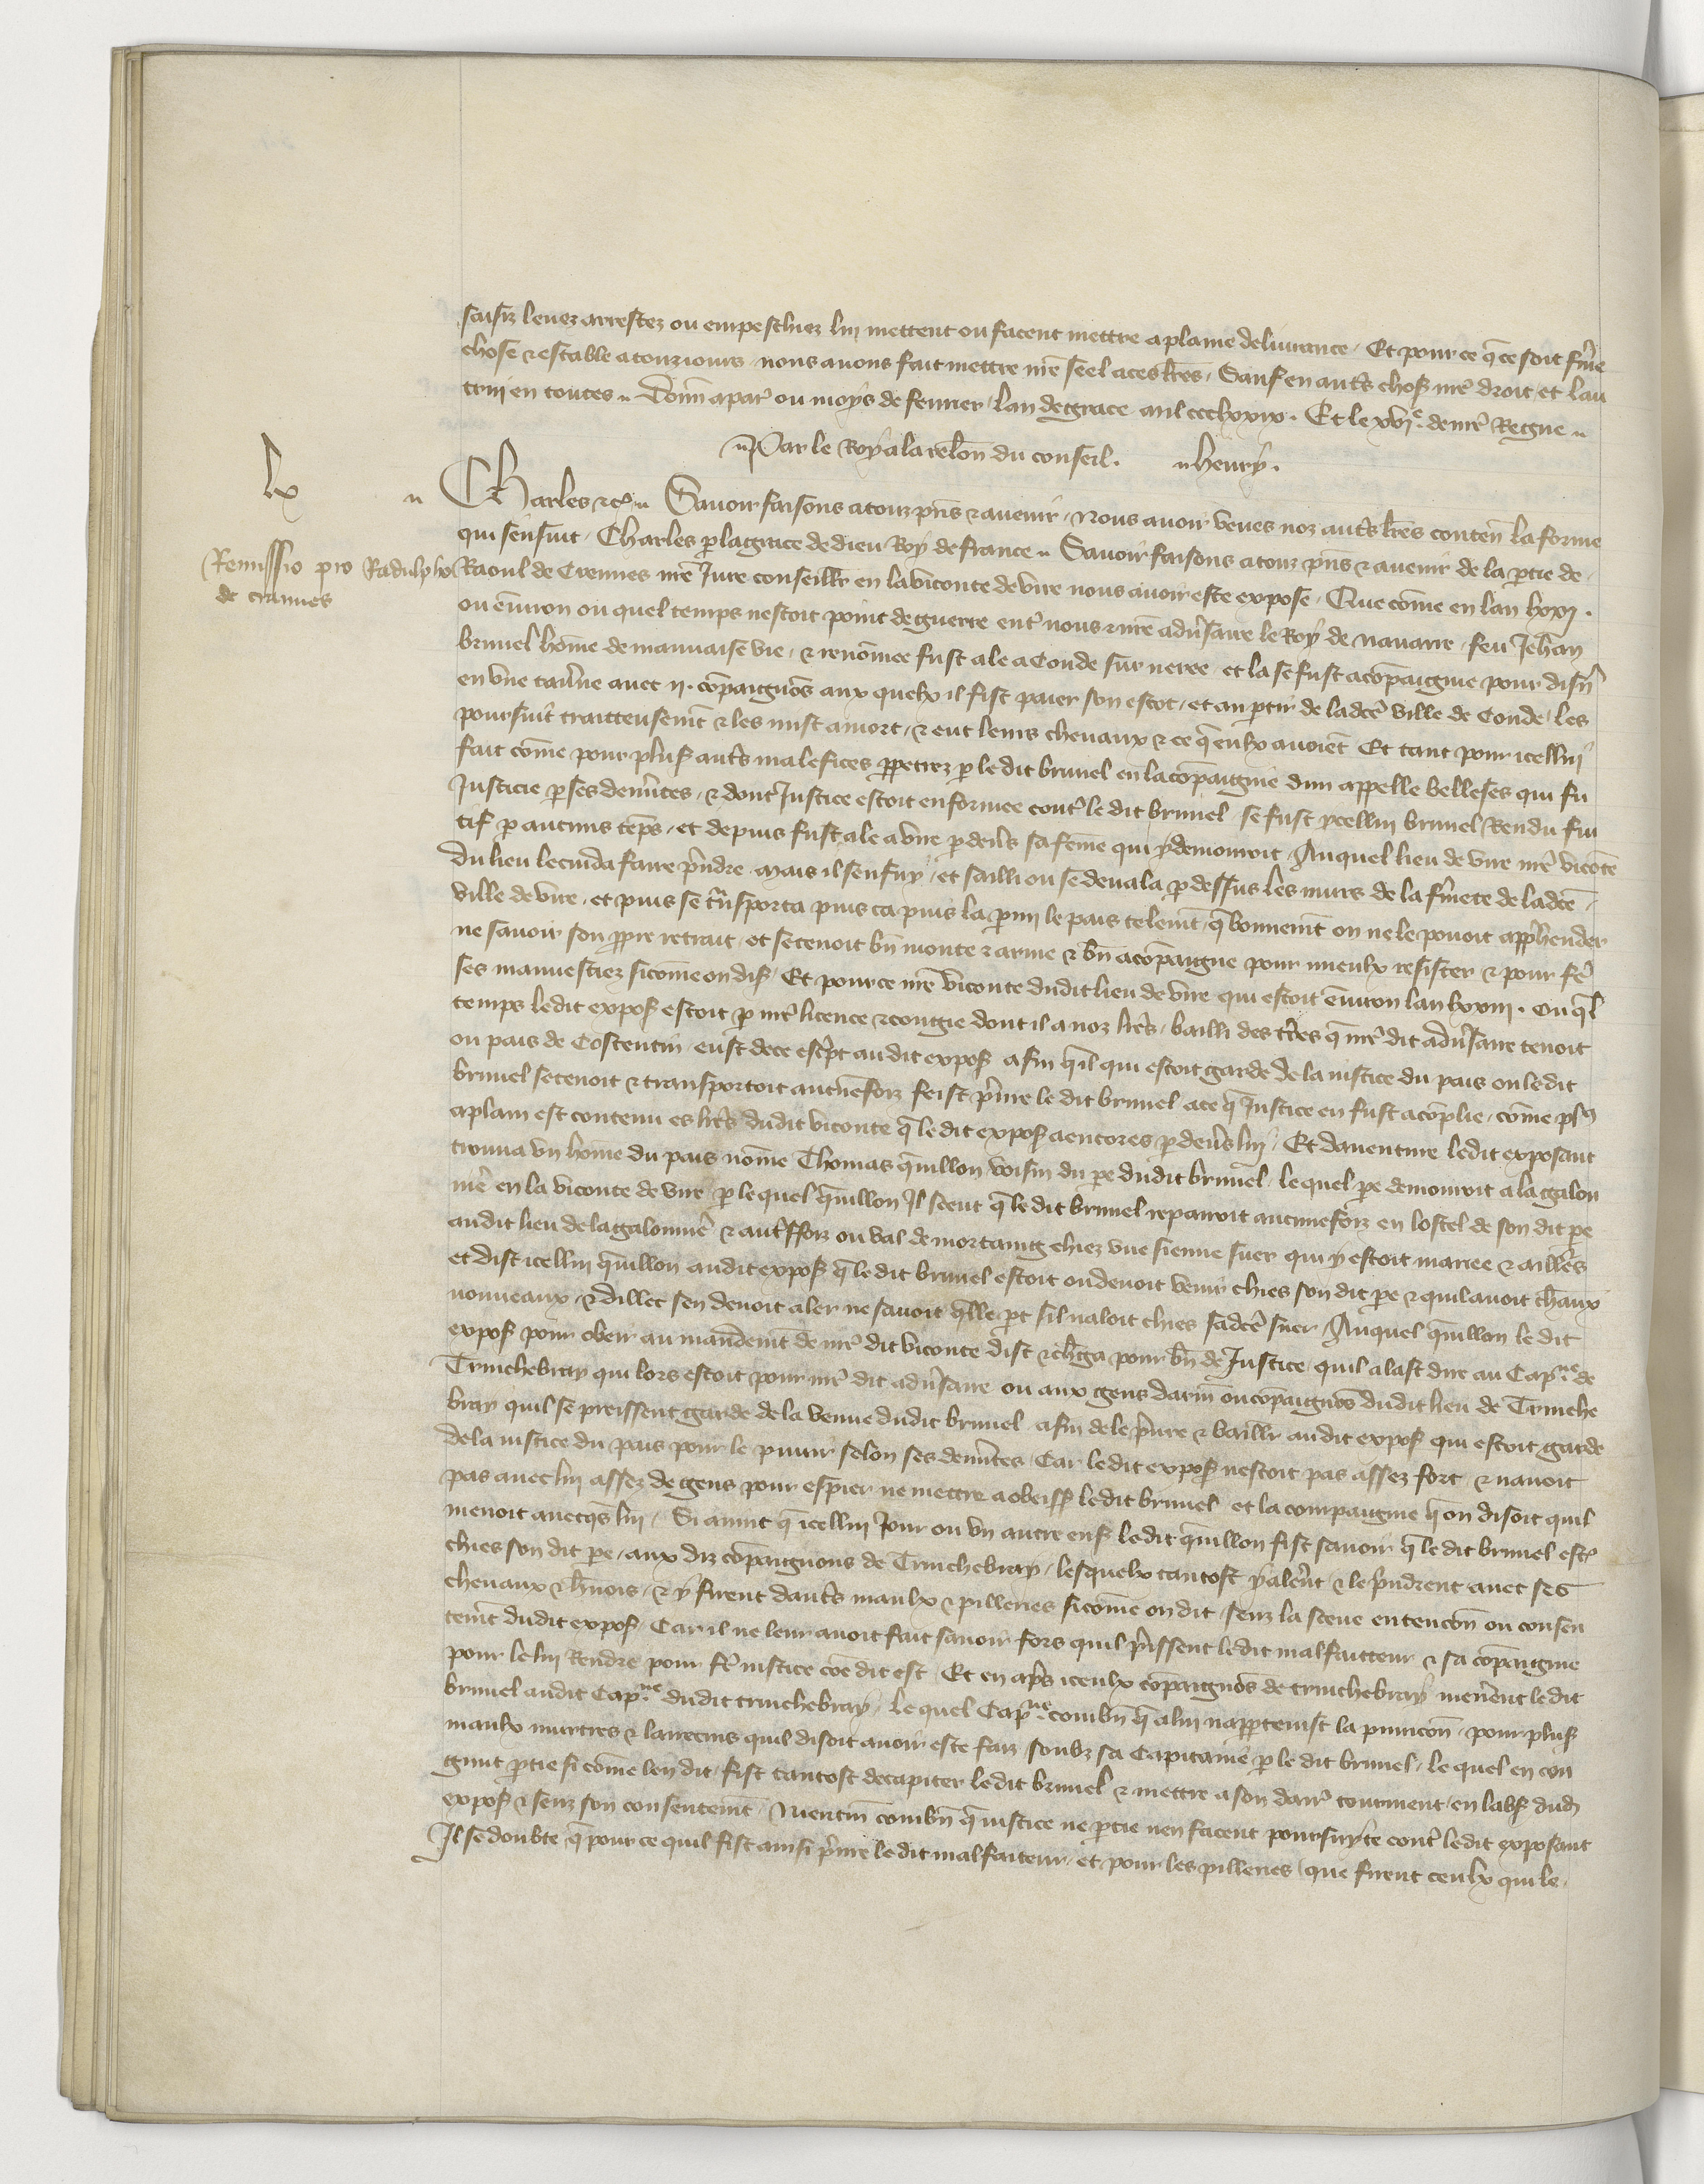 saisiz levez arrestez ou empeschiez lui mettent ou facent mettre a plaine delivrance. Et pour ce q̃ ce soit fẽme
chose & estable a touziours nous avons fait mettre nrẽ seel a ces lrẽs. Sauf en autš choš nrẽ droit et lau
truy en toutes. Donn̄ a par' ou moys de fevrier lan de grace mil ccc lxxix. Et le xvjͤ. de nrẽ Regne
Par le Roy a la relon̄ du conseil. henry.
lx
Remissio pro Radulpho
de crannes
Charles &c. Savoir faisons a touz pn̄s & avenir. Nous avoir veues noz autš lrẽs conten̄ la forme
qui sensuit. Charles p la grace de dieu Roy de france. Savoir faisons a touz pn̄s & avenir de la ptie de
Raoul de Crennes nrẽ Jure conseillr̄ en la viconte de vire nous avoir este expose. Que cõme en lan lxxj.
ou ẽviron ou quel temps nestoit point de guerre ent' nous & nrẽ adv̄saire le Roy de navarre. feu Jehan
brunel hõme de mauvaise vie & renõmee fust ale a Conde sur neree et la se fust acõpaignie pour disn̄
en vne tav̄ne avec ij. cõpaignõs aux quelx il fist paier son escot. et au ptir de ladcẽ ville de Conde les
poursuit traitteusem̃t & les mist a mort. & eut leurs chevaux & ce q̃ eulx avoiẽt Et tant pour icellui
fait cõme pour pluš autš malefices ppetrez p le dit brunel en la cõpaignie dun appelle belleses qui fu
Justicie p ses dem̃ites. & dont Justice estoit enformee cont' le dit brunel se fust ycellui brunel Rendu fui
tif p aucuns tẽps. et depuis fust ale a vire p devs̃ sa fẽme qui y demouroit Auquel lieu de vire nrẽ vicõte
du lieu le cuida faire pn̄dre mais il senfuy. et sailli ou se devala p dessus les murs de la fm̃ete de ladcẽ
ville de vire. et puis se t̃nsporta puis ca puis la pmi le pais telem̃t q̃ bonnem̃t on ne le povoit app̄hender
ne savoir son ppre retrait. et se tenoit bn̄ monte & arme & bn̄ acõpaigne pour mieulx resister & pour fẽ
ses mauvestiez sicõme on diš. Et pour ce nrẽ viconte dudit lieu de vire qui estoit ẽviron lan lxxiij. Ou q̃l
temps ledit expoš estoit p nrẽ licence & congie dont il a noz lrẽs. bailli des trẽs q̃ nrẽ dit adv̄saire tenoit
ou pais de Costentin. eust de ce escp̃t audit expoš afin q̃ il qui estoit garde de la iustice du pais ou ledit
brunel se tenoit & transportoit aucuneffoiz feist pñre le dit brunel a ce q̃ Justice en fust acõplie. cõme pl9
a plain est contenu es lrẽs dudit viconte q̃ le dit expoš a encores p devs̃ lui. Et daventure ledit exposant
trouva vn hõme du pais nõme Thomas q̃nillon voisin du pe dudit brunel. lequel pe demouroit a la galon
niẽ en la viconte de vire p lequel q̃nillon Il sceut q̃ le dit brunel repairoit aucuneffoiz en lostel de son dit pe
audit lieu de la galonniẽ & autsffoiz ou val de mortaing chiez vne sienne suer qui y estoit mariee & aillẽs
et dist icellui q̃nillon audit expoš q̃ le dit brunel estoit ou devoit venir chies son dit pe & quil avoit chãux
nouveaux. & dillec sen devoit aler ne savoit q̃lle pt sil naloit chies sadcẽ suer Auquel q̃nillon le dit
expoš pour obeir au mandem̃t de nrẽ dit viconte dist & chr̃ga pour bn̄ de Justice quil alast dire au Capne de
Trinchebray qui lors estoit pour nrẽ dit adv̄saire ou aux gens darm̃ ou cõpaignõs dudit lieu de Trinche
bray quil se preissent garde de la venue dudit brunel afin de le pñre & baillr̄ audit expoš qui estoit garde
de la iustice du pais pour le punir selon ses dem̃ites. Car le dit expoš nestoit pas assez fort & navoit
pas avec lui assez de gens pour espier ne mettre a obeiss̃ ledit brunel et la compaignie q̃ on disoit quil
menoit avecqs̃ lui. Si avint q̃ icellui Jour ou vn autre enš ledit q̃nillon fist savoir q̃ le dit brunel est'
chies son dit pe. aux diz cõpaignons de Trinchebray. lesquelx tantost y alẽrt & le pn̄drent avec ses
chevaux & hñois. & y firent dautš maulx & pilleries sicõme on dit. senz la sceue entencõn ou consen
tem̃t dudit expoš. Car il ne leur avoit fait savoir fors quil pñissent le dit malfaitteur & sa cõpaignie
pour le lui Rendre pour fẽ iustice cõe dit est. Et en aps̃ iceulx cõpaignõs de trinchebray menẽnt ledit
brunel audit Capne dudit trinchebray. le quel Capne combn̄ q̃ a lui nappetenist la punicõn. pour pluš
maulx murtres & larrecins quil disoit avoir este faiz soubz sa Capitainie p le dit brunel. le quel en con
gnut ptie si cõme len dit. fist tantost decapiter ledit brunel & mettre a son dañ' tourment. en labš dud
expoš & senz son consentem̃t. Nientm̃ combn̄ q̃ iustice ne ptie nen facent poursuyte cont' ledit exposant
Il se doubte q̃ pour ce quil fist ainsi pñre le dit malfaiteur. et pour les pilleries que firent ceulx qui le